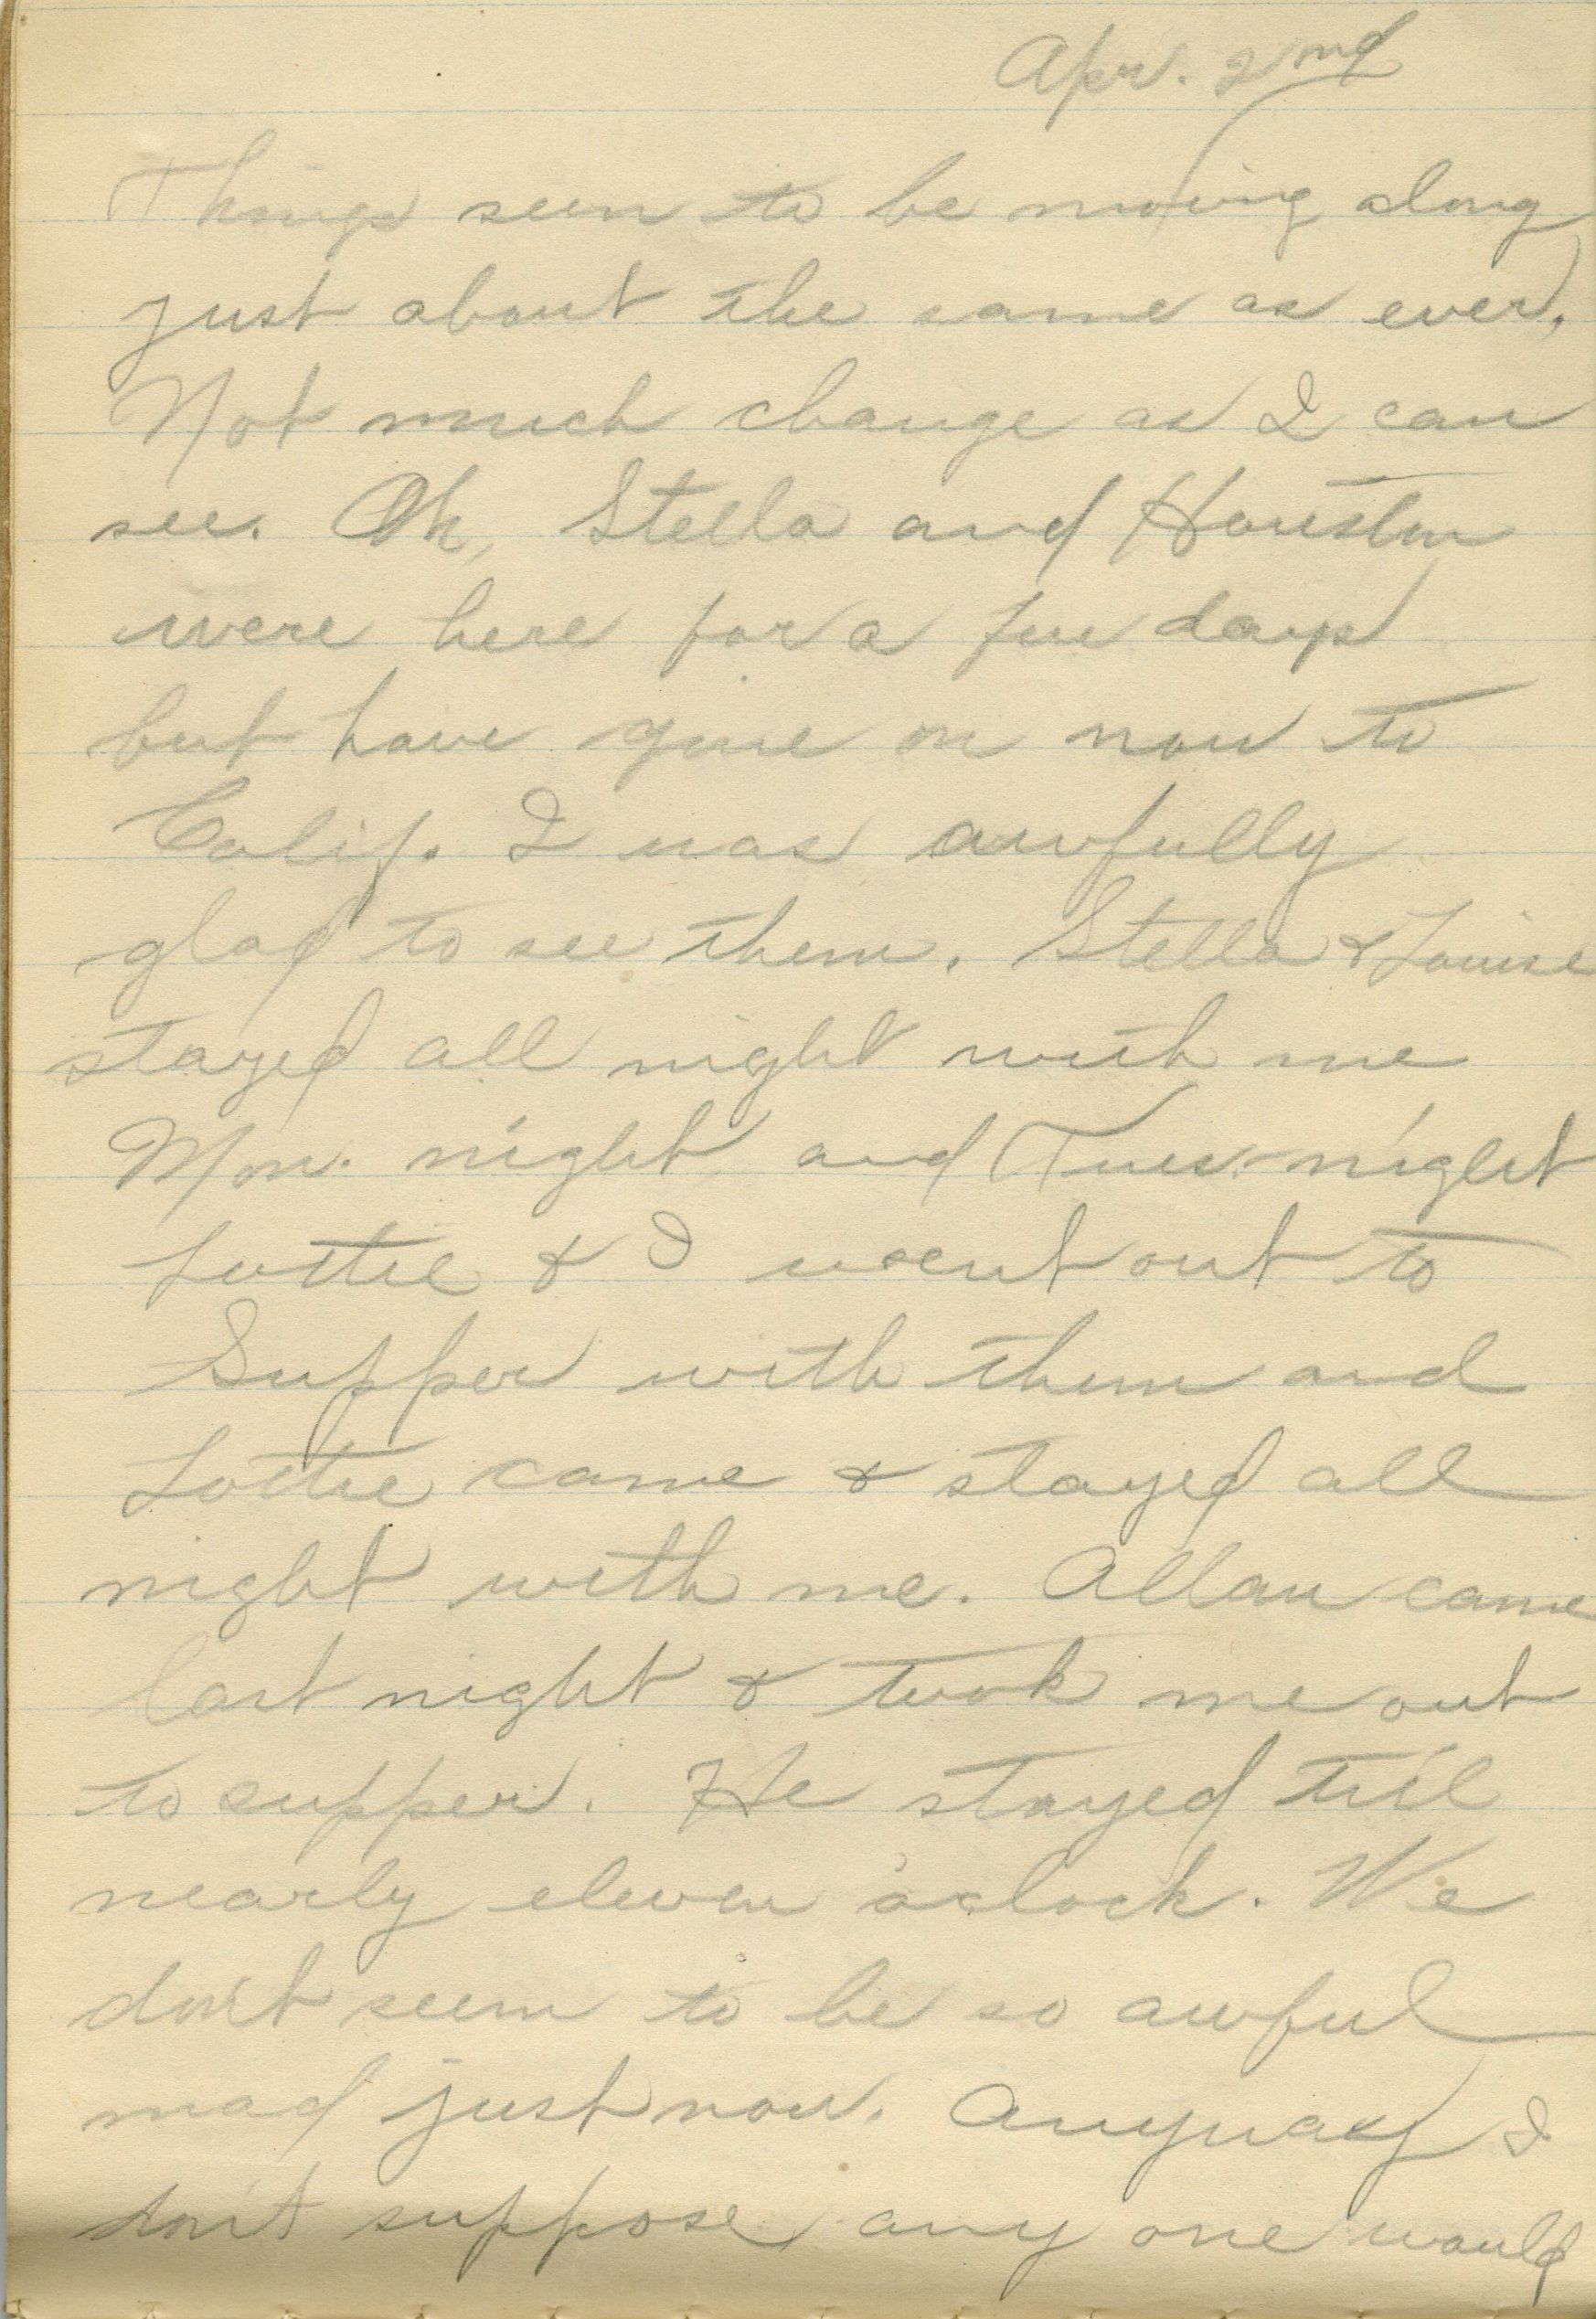 Apr. 2nd
Things seem to be moving along
just about the same as ever.
Not much change as I can
see. Oh, Stella and Houston
were here for a few days
but have gone on now to
Calif. I was awfully
glad to see them. Stella & Louise
stayed all night with me
Mon. night and Tues. night
Lottie & I went out to
Supper with them and
Lottie came & stayed all
night with me. Allan came
last night & took me out
to supper. He stayed till
nearly eleven o'clock. We
don't seem to be so awful
mad just now. Anyway I
don't suppose any one would